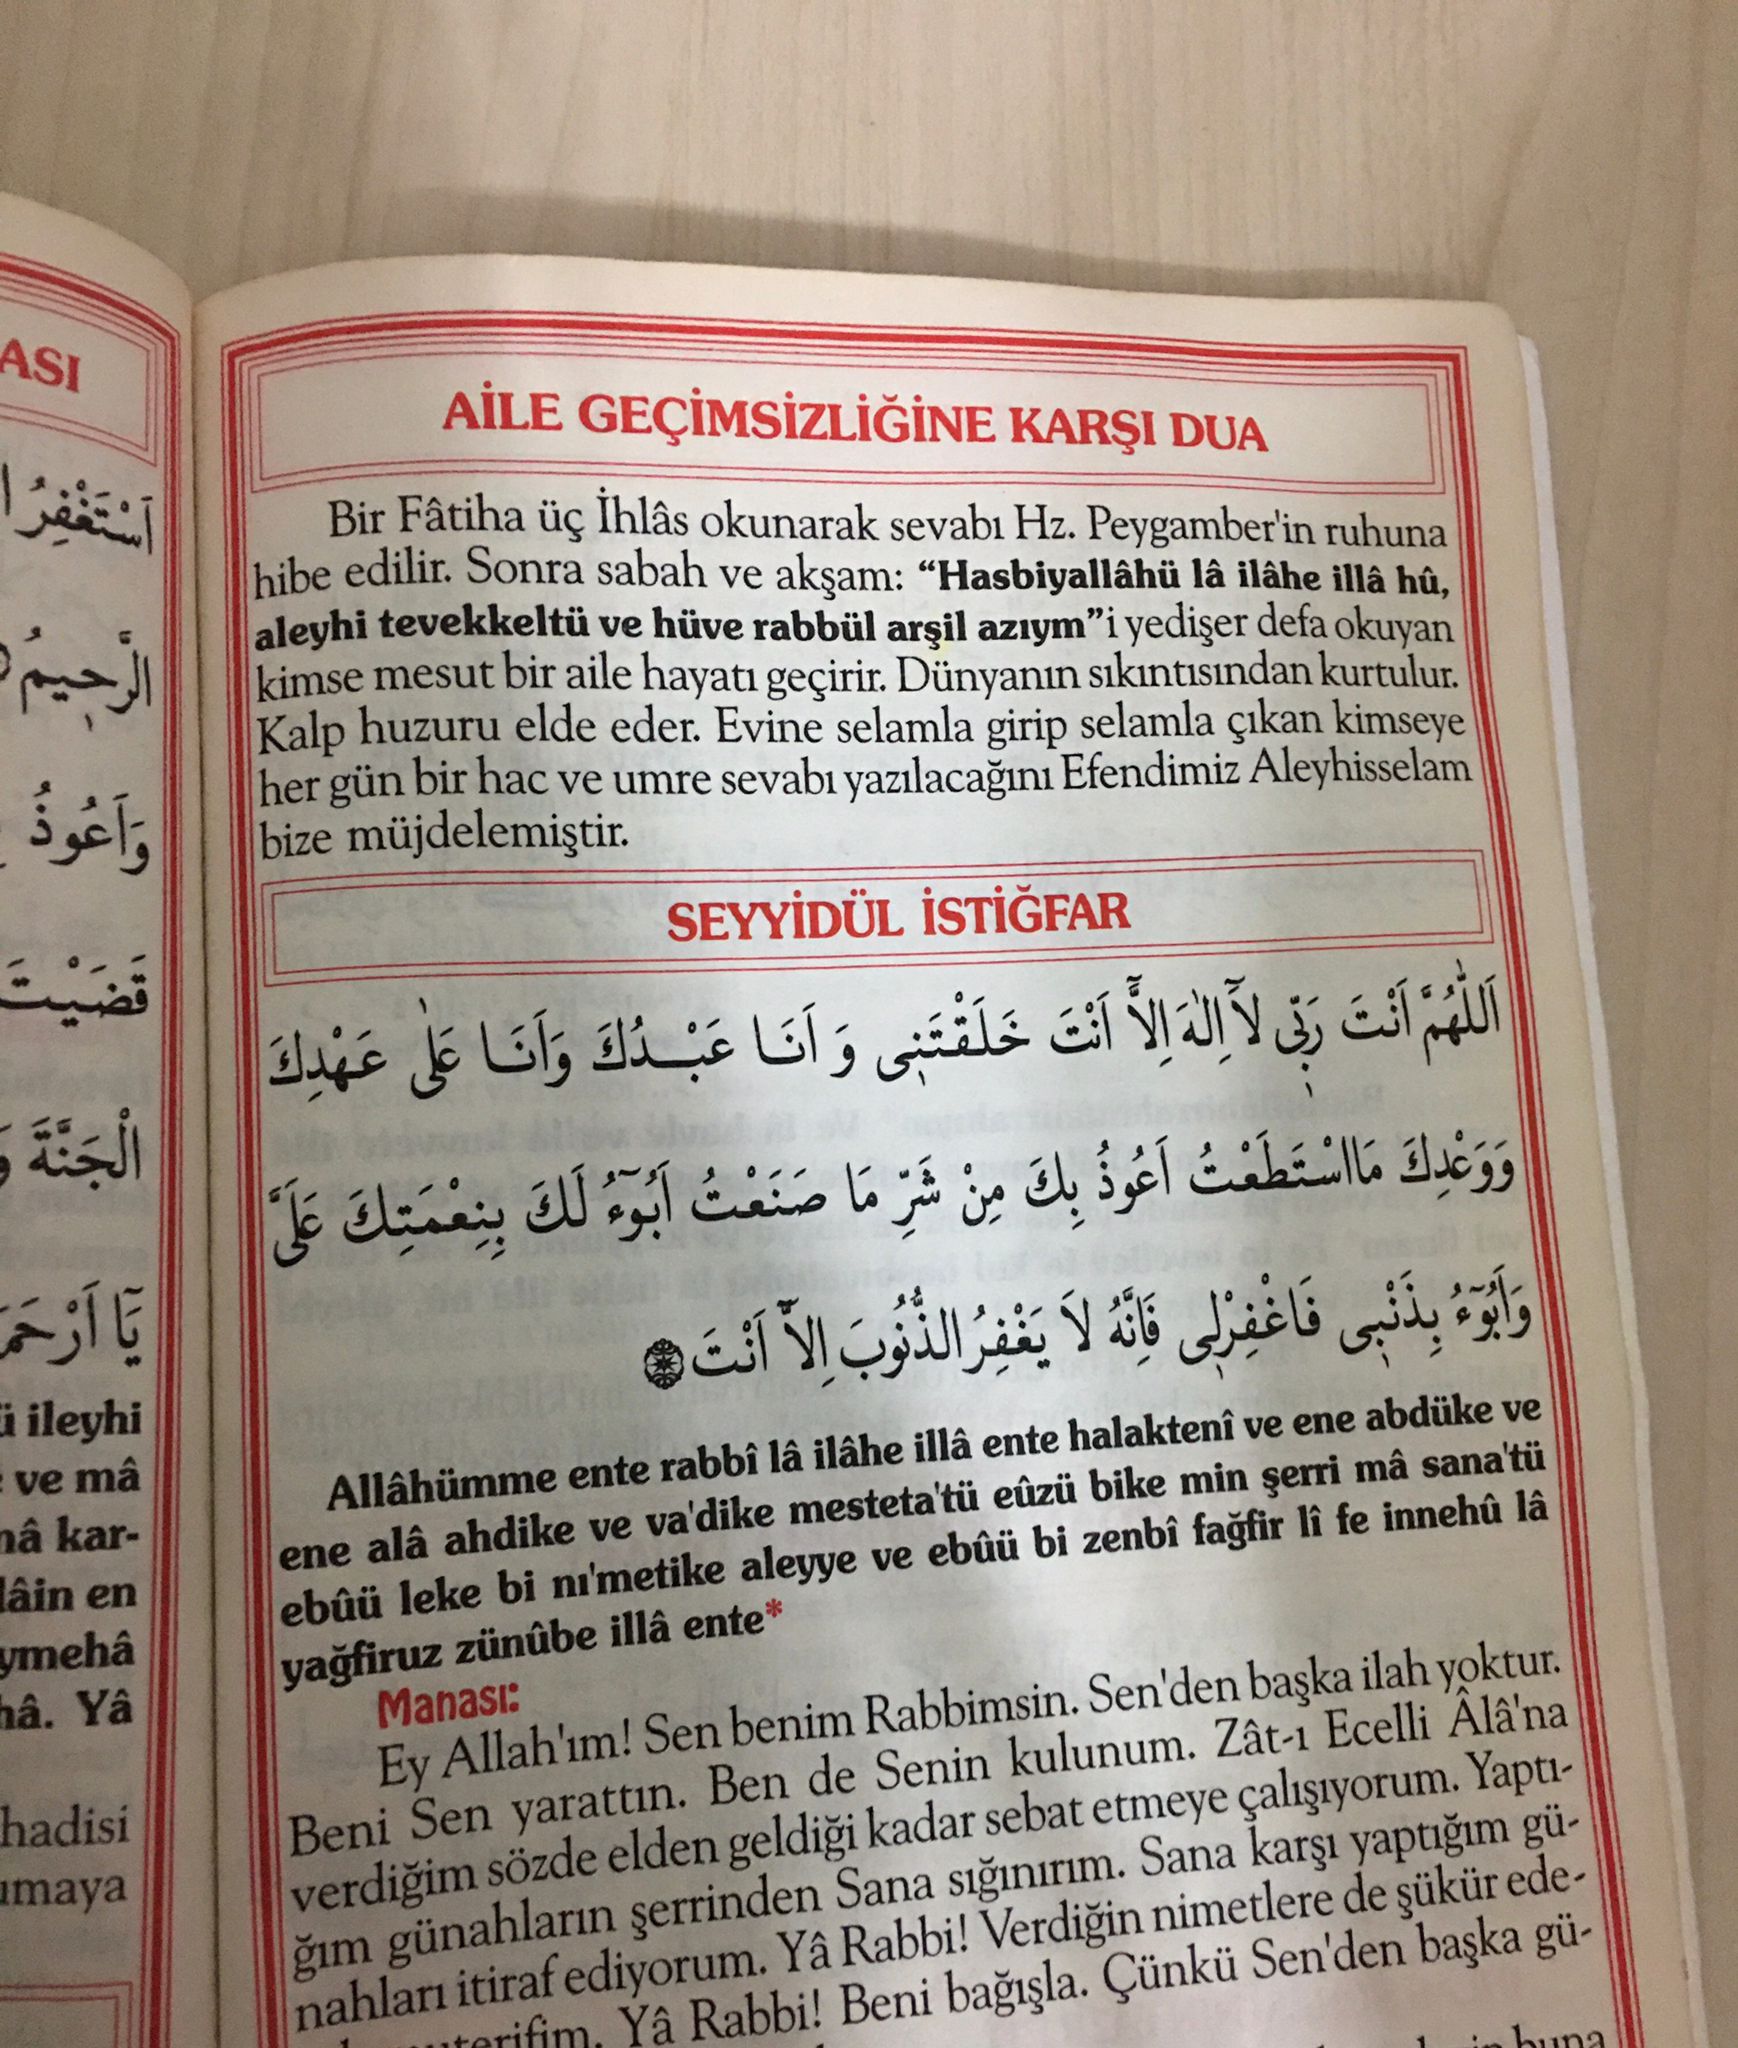 ASI
اَسْتَغْفِرُ
الرَّحِيمُ
وَاَعُوذُ
قَضَيْتَ
الْجَنَّةَ
يَٓا اَرْحَمَ
ü ileyhi
ve mâ
nâ kar-
lâin en
ymehâ
nâ. Yâ
hadisi
umaya
AİLE GEÇİMSİZLİĞİNE KARŞI DUA
Bir Fâtiha üç İhlâs okunarak sevabı Hz. Peygamber'in ruhuna
hibe edilir. Sonra sabah ve akşam: “Hasbiyallâhü lâ ilâhe illâ hû,
aleyhi tevekkeltü ve hüve rabbül arşil azıym”i yedişer defa okuyan
kimse mesut bir aile hayatı geçirir. Dünyanın sıkıntısından kurtulur.
Kalp huzuru elde eder. Evine selamla girip selamla çıkan kimseye
her gün bir hac ve umre sevabı yazılacağını Efendimiz Aleyhisselam
bize müjdelemiştir.
SEYYİDÜL İSTİĞFAR
اَللّٰهُمَّ اَنْتَ رَبِّى لَٓا اِلٰهَ اِلَّٓا اَنْتَ خَلَقْتَنِى وَ اَنَا عَبْدُكَ وَاَنَا عَلٰى عَهْدِكَ
وَوَعْدِكَ مَااسْتَطَعْتُ اَعُوذُ بِكَ مِنْ شَرِّ مَا صَنَعْتُ اَبُٓوءُ لَكَ بِنِعْمَتِكَ عَلَىَّ
وَاَبُٓوءُ بِذَنْبِى فَاغْفِرْلِى فَاِنَّهُ لَا يَغْفِرُ الذُّنُوبَ اِلَّٓا اَنْتَ
Allâhümme ente rabbî lâ ilâhe illâ ente halaktenî ve ene abdüke ve
ene alâ ahdike ve va'dike mesteta'tü eûzü bike min şerri mâ sana'tü
ebûü leke bi nı'metike aleyye ve ebûü bi zenbî fağfir lî fe innehû lâ
yağfiruz zünûbe illâ ente*
Manası:
Ey Allah'ım! Sen benim Rabbimsin. Sen'den başka ilah yoktur.
Beni Sen yarattın. Ben de Senin kulunum. Zât-ı Ecelli Âlâ'na
verdiğim sözde elden geldiği kadar sebat etmeye çalışıyorum. Yaptı-
ğım günahların şerrinden Sana sığınırım. Sana karşı yaptığım gü-
nahları itiraf ediyorum. Yâ Rabbi! Verdiğin nimetlere de şükür ede-
Yâ Rabbi! Beni bağışla. Çünkü Sen'den başka gü-
buna